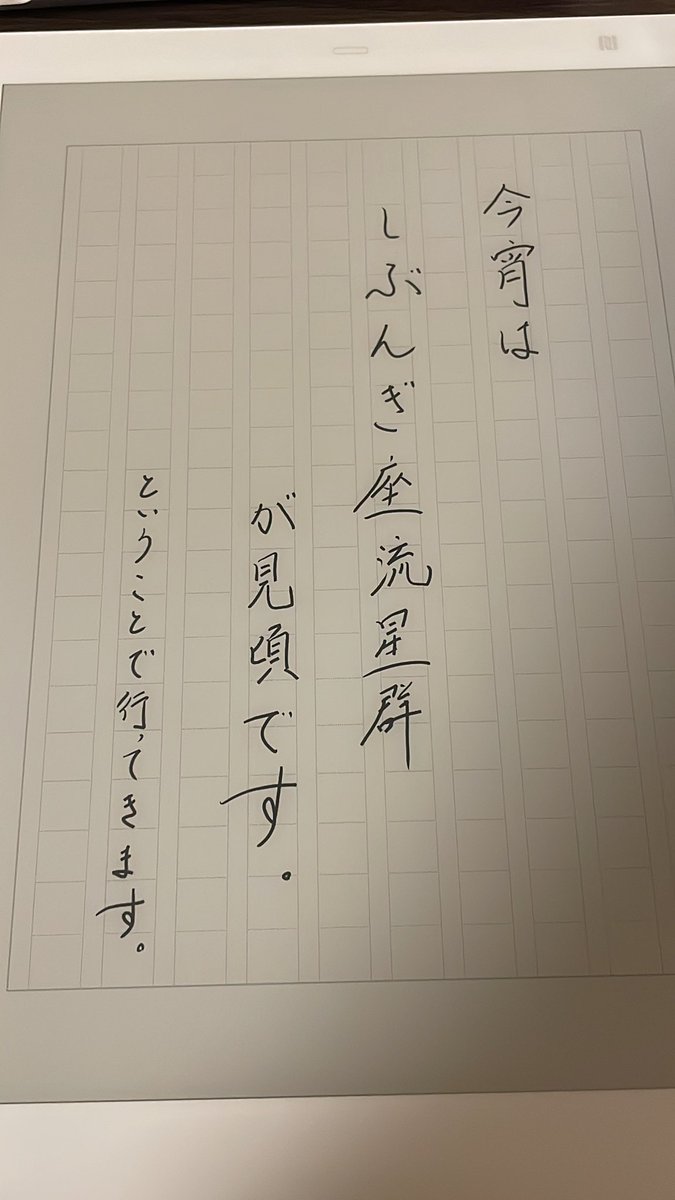 今宵は
しぶんぎ座流星群
が見頃です。
ということで行ってきます。